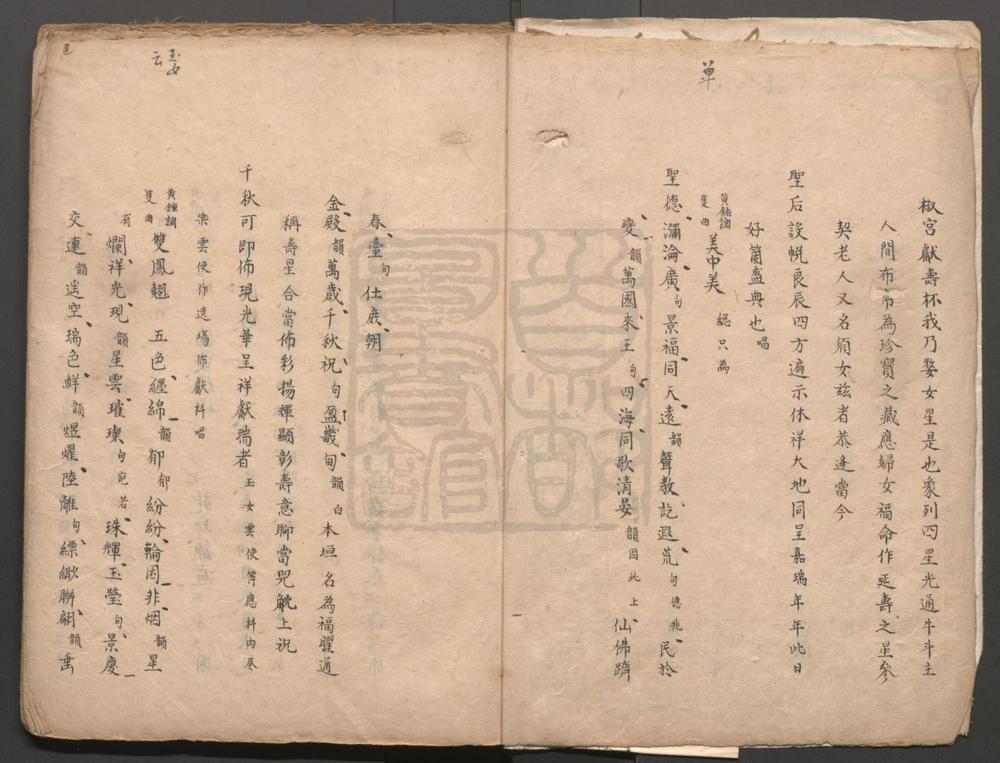 單
椒宮獻壽杯我乃婺女星是也象列四星光通牛斗主
人間布帛為珍寶之藏應婦女福命作延壽之星參
契老人又名須女兹者恭逢當今
聖后設帨良辰四方遍示休祥大地同呈嘉瑞年年此日
好箇盛典也唱
黃鍾調隻曲 美中美 總只為
聖德瀰淪廣句景福同天遠韻聲教訖遐荒句億兆民於
變韻萬國來王句四海同歌清晏韻因此上仙佛躋
春臺句仕庶朝
金殿韻萬歲千秋祝句盈畿甸韻白本垣名為福曜適
稱壽星合當佈彩揚輝顯彰壽意聊當兕觥上祝
千秋可即佈現光華呈祥獻瑞者玉女雲使等應科內奏
樂雲使作遶場佈獻科唱
黃鍾調隻曲 雙鳳翹 五色纏綿韻郁郁紛紛輪囷非烟韻星
有爛祥光現韻星雲璀璨句宛若珠輝玉瑩句景慶
交連韻遥空瑞色鮮韻煜燿陸離句縹緲聯翩韻垂
玉女
云